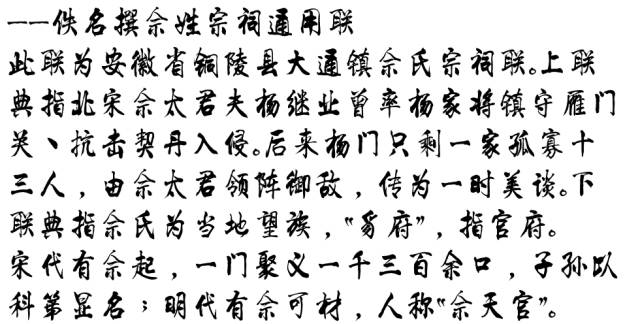 ——佚名撰佘姓宗祠通用联
此联为安徽省铜陵县大通镇佘氏宗祠联。上联
典指北宋佘太君夫杨继业曾率杨家将镇守雁门
关、抗击契丹入侵。后来杨门只剩一家孤寡十
三人，由佘太君领阵御敌，传为一时美谈。下
联典指佘氏为当地望族，“豸府”，指官府。
宋代有佘起，一门聚义一千三百余口，子孙以
科第显名；明代有佘可材，人称“佘天官”。